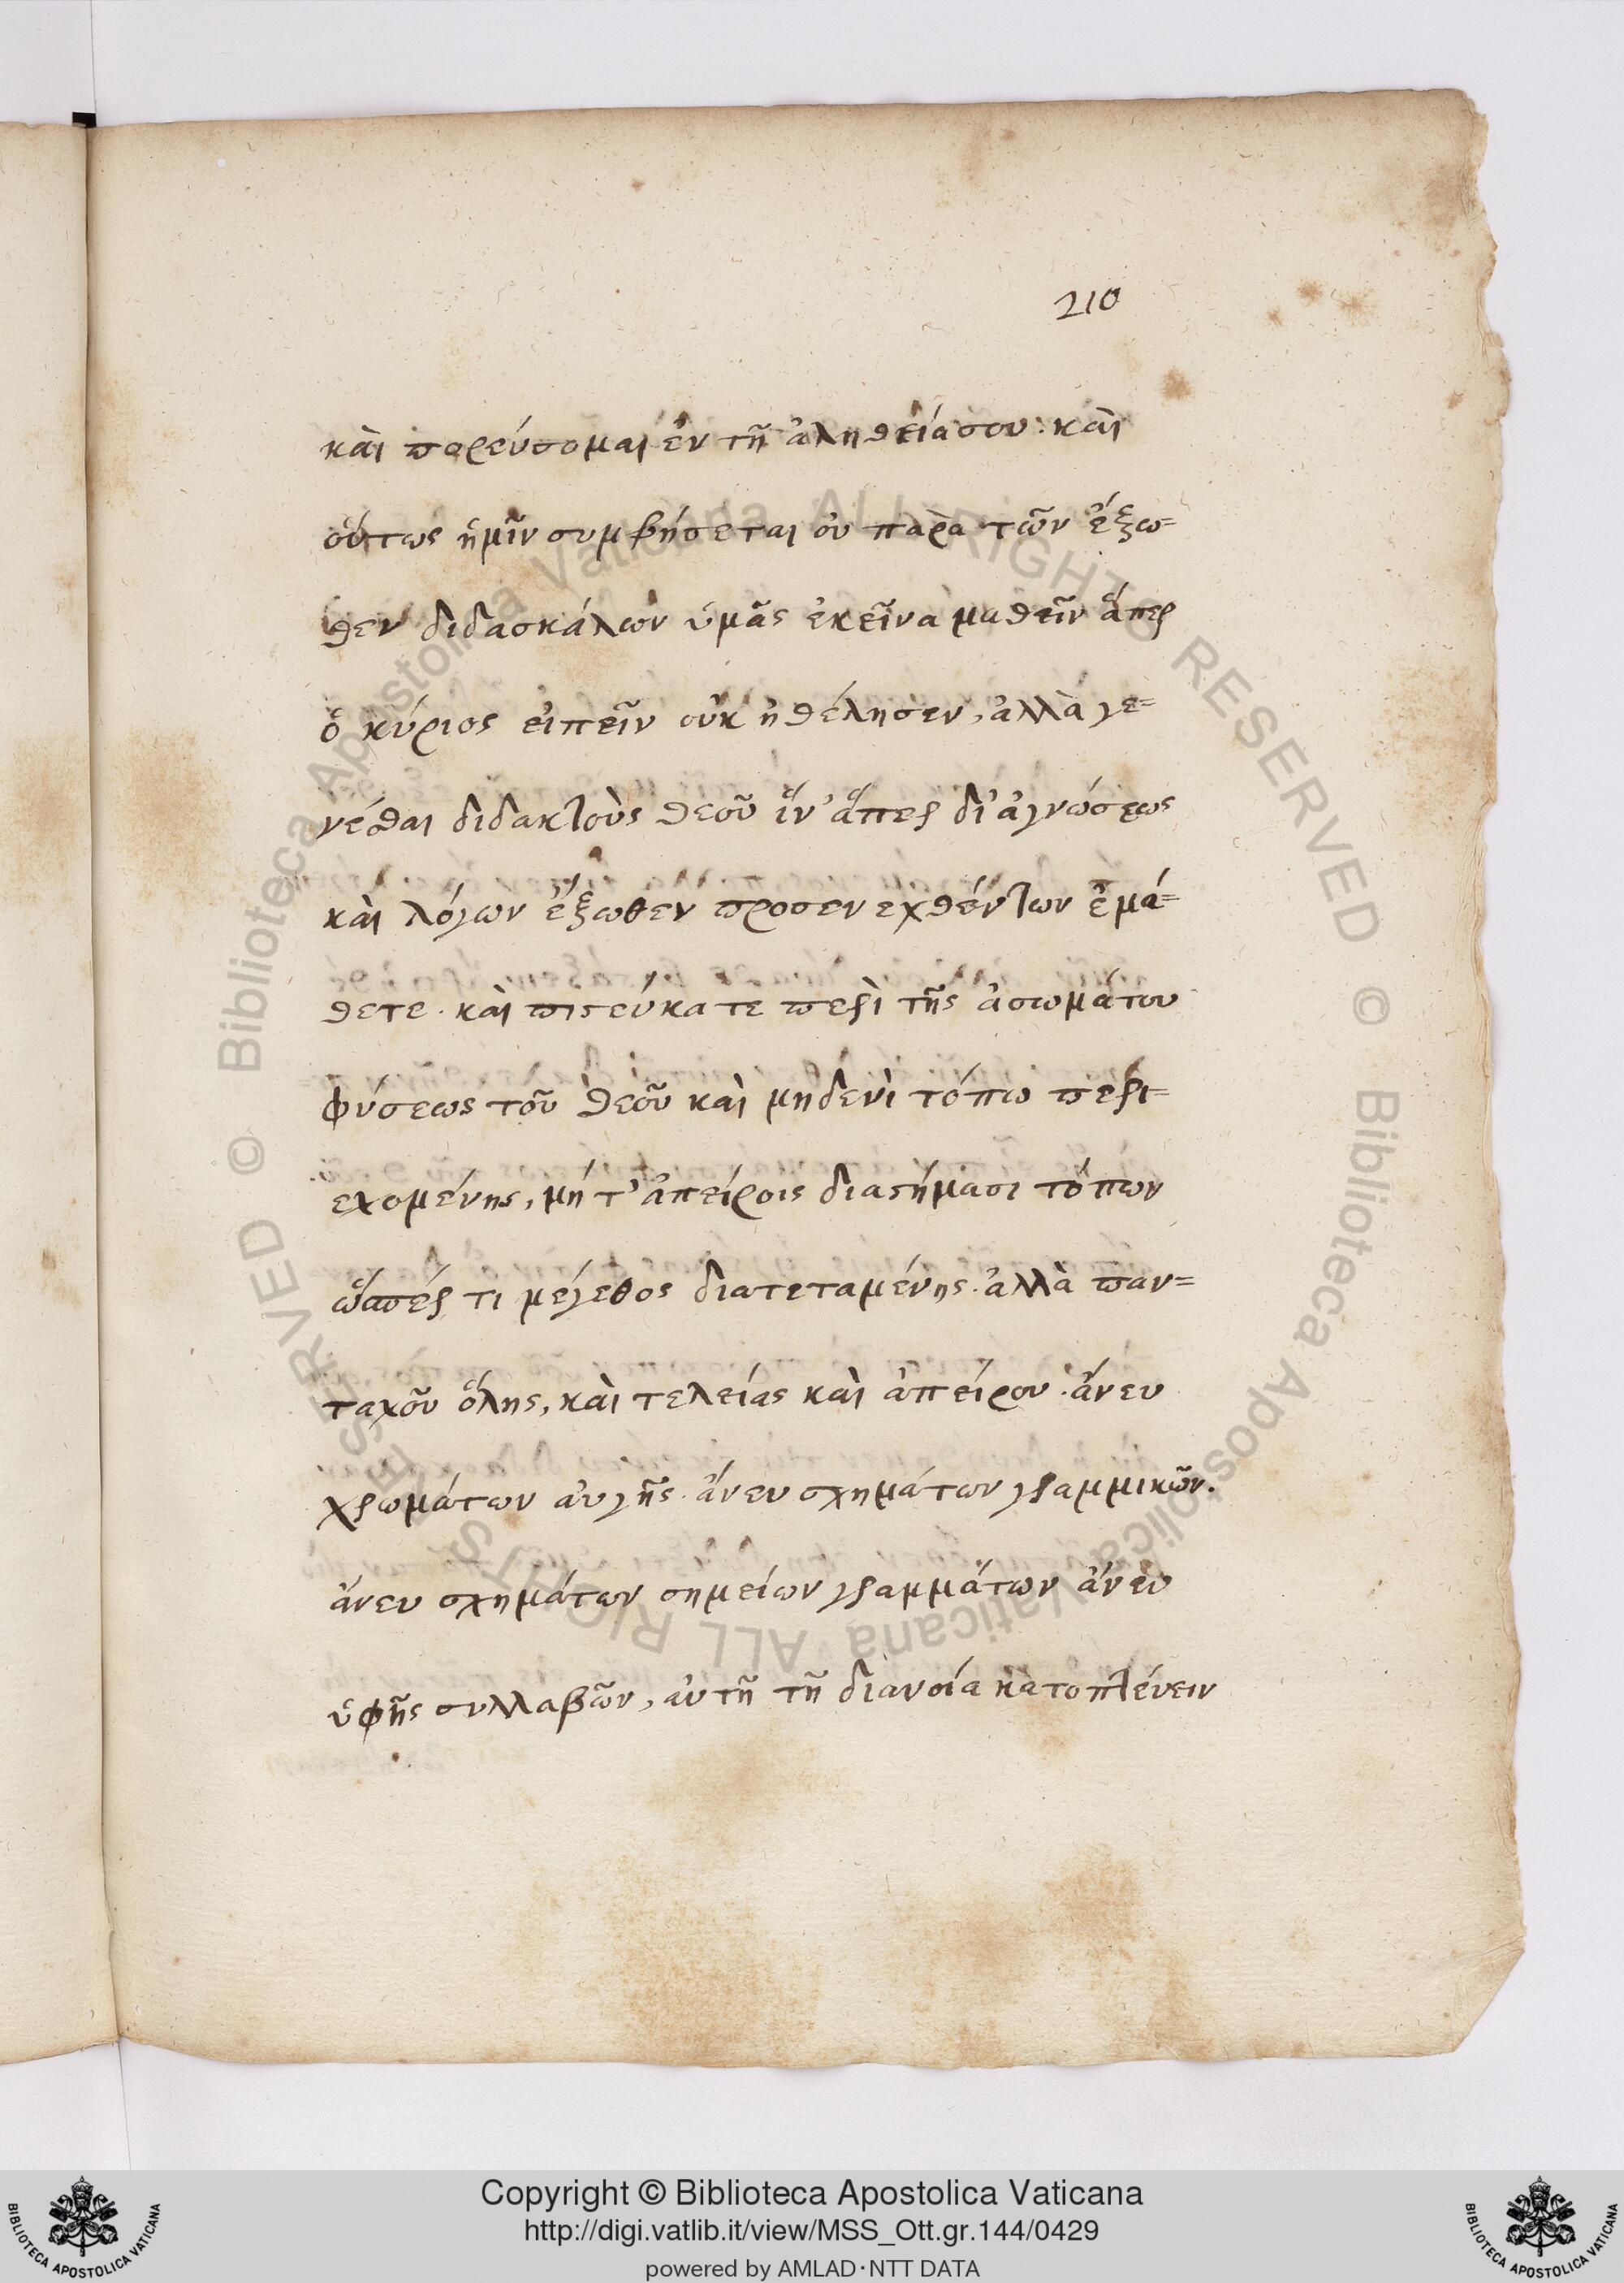 210
καὶ πορεύσομαι ἐν τῇ ἀληθείᾳ σου. καὶ
οὕτως ἡμῖν συμβήσεται οὐ παρὰ τῶν ἔξω=
θεν διδασκάλων ὑμᾶς ἐκεῖνα μαθεῖν ἅπερ
ὁ κύριος εἰπεῖν οὐκ ἠθέλησεν, ἀλλὰ γε=
νέσθαι διδακτοὺς θεοῦ ἵν' ἅπερ δι' ἀγνώσεως
καὶ λόγων ἔξωθεν προσενεχθέντων ἐμά=
θετε. καὶ πιστεύκατε περὶ τῆς ἀσωμάτου
φύσεως τοῦ θεοῦ καὶ μηδενὶ τόπω περι=
εχομένης, μήτ' ἀπείροις διαστήμασι τόπων
ὥσπέρ τι μέγεθος διατεταμένης. ἀλλὰ παν=
ταχοῦ ὅλης, καὶ τελείας καὶ ἀπείρου. ἄνευ
χρωμάτων αὐγῆς. ἄνευ σχημάτων γραμμικῶν.
ἄνευ σχημάτων σημείων γραμμάτων ἄνευ
ὑφῆς συλλαβῶν, αὐτῇ τῇ διανοία κατοπτεύειν
Biblioteca Apostolica Vaticana ALL RIGHTS RESERVED ©
Biblioteca Apostolica Vaticana ALL RIGHTS RESERVED ©
Copyright © Biblioteca Apostolica Vaticana
http://digi.vatlib.it/view/MSS_Ott.gr.144/0429
powered by AMLAD·NTT DATA
BIBLIOTECA APOSTOLICA VATICANA
BIBLIOTECA APOSTOLICA VATICANA